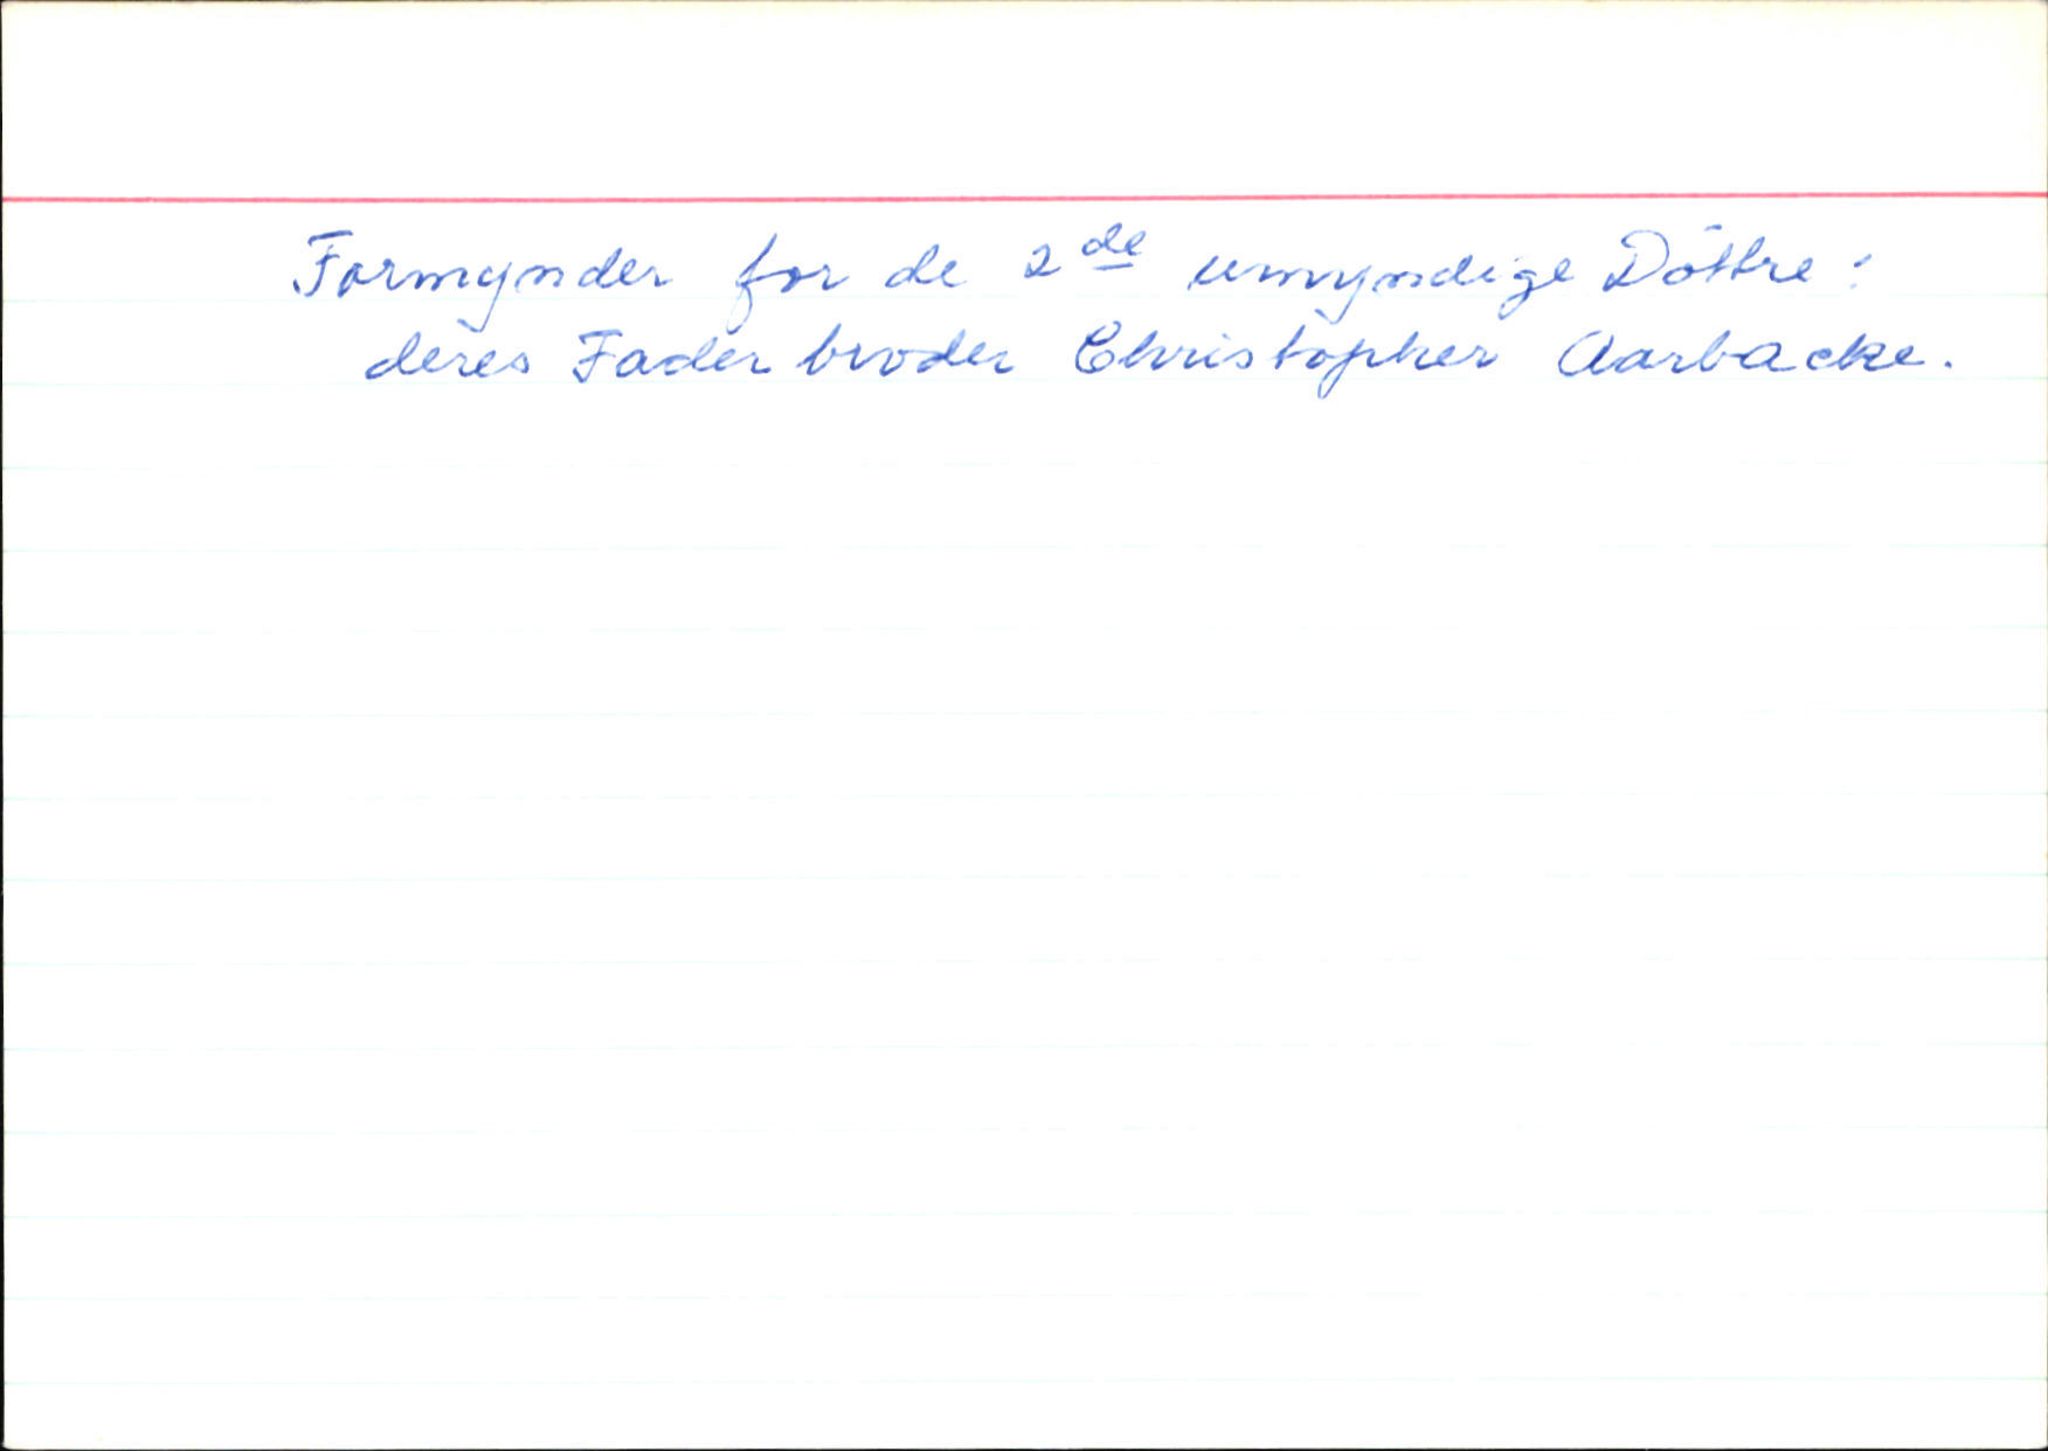 Formynder for de 2de umyndige Döttre:
deres Fader broder Christopher Aarbacke.